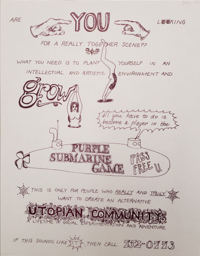 ARE YOU LOOKING
FOR A REALLY TOGETHER SCENE??
WHAT YOU NEED IS TO PLANT YOURSELF IN AN
INTELLECTUAL AND ARTISTIC ENVIRONMENT AND
grow
All you have to do is
become a player in the
PURPLE
SUBMARINE
GAME
FREE U.
THIS IS ONLY FOR PEOPLE WHO REALLY AND TRULY
WANT TO CREATE AN ALTERNATIVE
UTOPIAN COMMUNITY
A LIFETIME OF SOCIAL EXPERIMENTATION AND ADVENTURE
IF THIS SOUNDS LIKE YOU, THEN CALL 552-0773